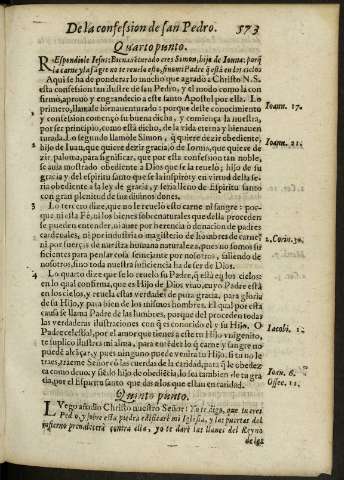 De la confession de san Pedro. 573
Quarto punto.
REspondiole Iesus: Bienauēturado eres Simon, hijo de Ionas: porq̃
la carne y la sãgre no te revelo esto, sino mi Padre q̃ està en los cielos
Aqui se ha de ponderar lo mucho que agradò a Christo N. S.
esta confession tan ilustre de san Pedro, y el modo como la con
firmò, aprouò y engrandecio a este santo Apostol por ella. Lo
primero, llamale bienauenturado: porque deste conocimiento Ioann. 17.
y confession començò su buena dicha, y comiença la nuestra,
por ser principio, como està dicho, de la vida eterna y bienauen
turada. Lo segundo llamòle Simon; q̃ quiere dezir obediente, Ioann. 21.
hijo de Iuan, que quiere dezir gracia, ò de Ionas, que quiere de
zir paloma, para significar, que por esta confession tan noble,
se auia mostrado obediente a Dios que se la reuelò; hijo de su
gracia y del espiritu santo que la inspirò: y en virtud desta se
ria obediente a la ley de gracia, y seria lleno de Espiritu santo
con gran plenitud de sus diuinos dones.
3 Lo tercero dize, que no le reuelò esto carne ni sangre: por-
que ni esta Fè, ni los bienes sobrenaturales que della proceden
se pueden entender, ni auer por herencia ò donacion de padres
carduales, ni por industria o magisterio de hombres de carne;
ni por fuerças de nuestra humana naturaleza, pues no somos su 2. Corin. 3.
ficientes para pensar cosa semejante por nosotros, saliendo de
nosotros, sino toda nuestra suficiencia ha de ser de Dios.
4 Lo quarto dize que se lo reuelò su Padre, q̃ està en los cielos:
en lo qual confirma, que es Hijo de Dios viuo, cuyo Padre està
en los cielos, y reuela estas verdades de pura gracia, para gloria
de su Hijo, y para bien de los mismos hombres. El qual por esta
causa se llama Padre de las lumbres, porque del proceden todas
las verdaderas ilustraciones con q̃ es conocido el y su Hijo. O Iacobi. 1.
Padre celestial, por el amor que tienes a este tu Hijo vnigenito,
te suplico ilustres mi alma, para entēder lo q̃ carne y sangre no
puede alcãçar, y pues ninguno puede venir a tu Hijo, si tu no le
traes, traeme Señor cō las cuerdas de la caridad, para q̃ le obedez
ca como deuo, y siēdo hijo de obediēcia, lo sea tambien de tu gra Ioan. 6.
cia, por el Espiritu santo que das a los que estan en caridad. Osseę. 11.
Quinto punto.
LVego añadio Christo nuestro Señor: Yo te digo, que tu eres
Pedro, y sobre esta piedra edificarè mi Iglesia, y las puertas del
infierno no preualecerà contra ella, yo te darè las llaues del Reyno
de los